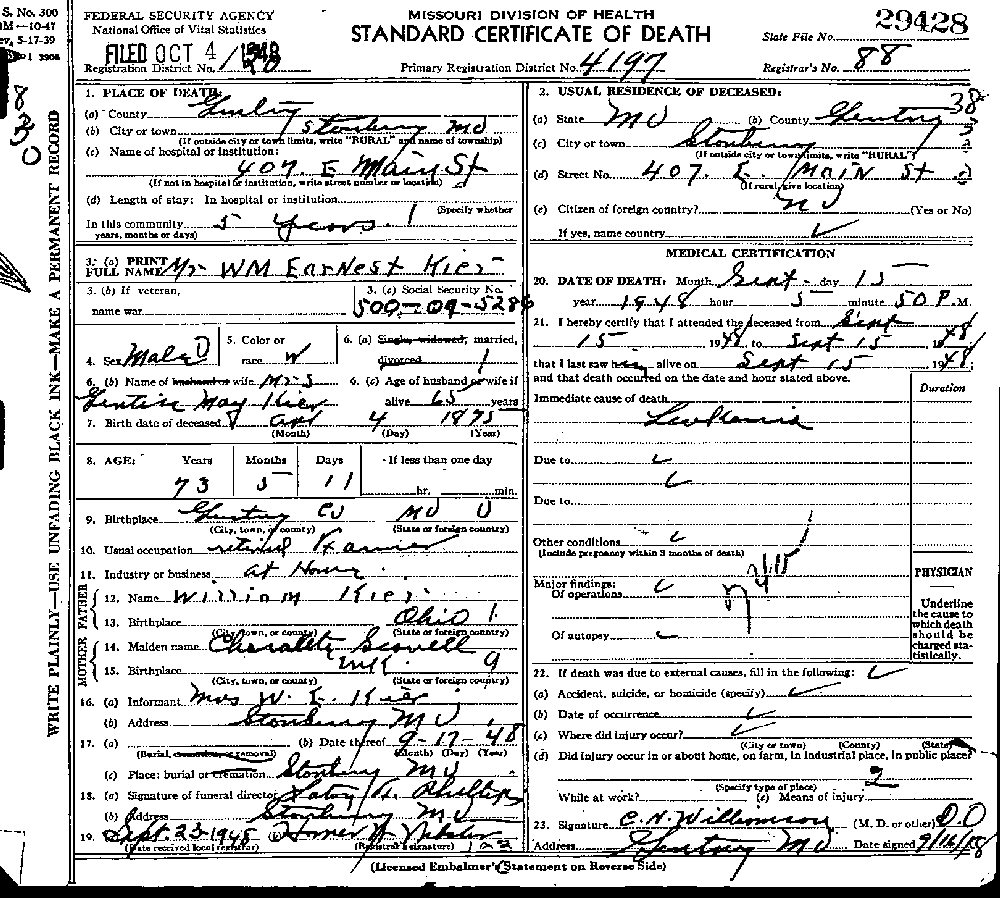 S. No. 300
M—10-47
ev. 5-17-39
I 3906
FEDERAL SECURITY AGENCY
National Office of Vital Statistics
FILED OCT 4 1948
MISSOURI DIVISION OF HEALTH
STANDARD CERTIFICATE OF DEATH
29428
State File No.
Registration District No.
Primary Registration District No. 4197
Registrar's No. 88
830
WRITE PLAINLY—USE UNFADING BLACK INK—MAKE A PERMANENT RECORD
1. PLACE OF DEATH:
(a) County Gentry
(b) City or town Stanberry MO
(If outside city or town limits, write "RURAL" and name of township)
(c) Name of hospital or institution:
407. E Main St
(If not in hospital or institution, write street number or location)
(d) Length of stay: In hospital or institution
(Specify whether
In this community 5 years
years, months or days)
2. USUAL RESIDENCE OF DECEASED:
38
(a) State MO (b) County Gentry 3
(c) City or town Stanberry
(If outside city or town limits, write "RURAL")
(d) Street No. 407. E. MAIN St
(If rural, give location)
(e) Citizen of foreign country? no (Yes or No)
If yes, name country
3. (a) PRINT FULL NAME Mr WM Earnest Kier
3. (b) If veteran,
name war
3. (c) Social Security No.
500-09-5286
4. Sex Male 0
5. Color or race W
6. (a) Single, widowed, married, divorced 1
6. (b) Name of husband or wife Mrs
May Kier
6. (c) Age of husband or wife if
alive 65 years
7. Birth date of deceased 4 1875
(Month) (Day) (Year)
8. AGE: Years Months Days If less than one day
73 5 11 hr. min.
9. Birthplace Gentry Co MO 0
(City, town, or county) (State or foreign country)
10. Usual occupation retired Farmer
11. Industry or business at Home
FATHER
12. Name William Kier
13. Birthplace Ohio 1
(City, town, or county) (State or foreign country)
MOTHER
14. Maiden name
15. Birthplace unk. 9
(City, town, or county) (State or foreign country)
16. (a) Informant Mrs W. E. Kier
(b) Address Stanberry MO
17. (a) (b) Date thereof 9-17-48
(Burial, cremation, or removal) (Month) (Day) (Year)
(c) Place: burial or cremation Stanberry MO
18. (a) Signature of funeral director Phillips
(b) Address Stanberry MO
19. Sept. 23-1948 (b) Homer
(Date received local registrar) (Registrar's signature)
MEDICAL CERTIFICATION
20. DATE OF DEATH: Month Sept. day 15
year 1948 hour 5 minute 50 P.M.
21. I hereby certify that I attended the deceased from Sept
15 1948 to Sept 15 1948
that I last saw him alive on Sept 15 1948
and that death occurred on the date and hour stated above.
Duration
Immediate cause of death
Leukemia
Due to
Due to
Other conditions
(Include pregnancy within 3 months of death)
Major findings:
Of operations
Of autopsy
PHYSICIAN
Underline the cause to which death should be charged statistically.
22. If death was due to external causes, fill in the following:
(a) Accident, suicide, or homicide (specify)
(b) Date of occurrence
(c) Where did injury occur?
(City or town) (County) (State)
(d) Did injury occur in or about home, on farm, in industrial place, in public place?
2
(Specify type of place)
While at work? (e) Means of injury
23. Signature C. N. Williamson (M. D. or other) D.O
Address Gentry MO Date signed 9/16/48
(Licensed Embalmer's Statement on Reverse Side)